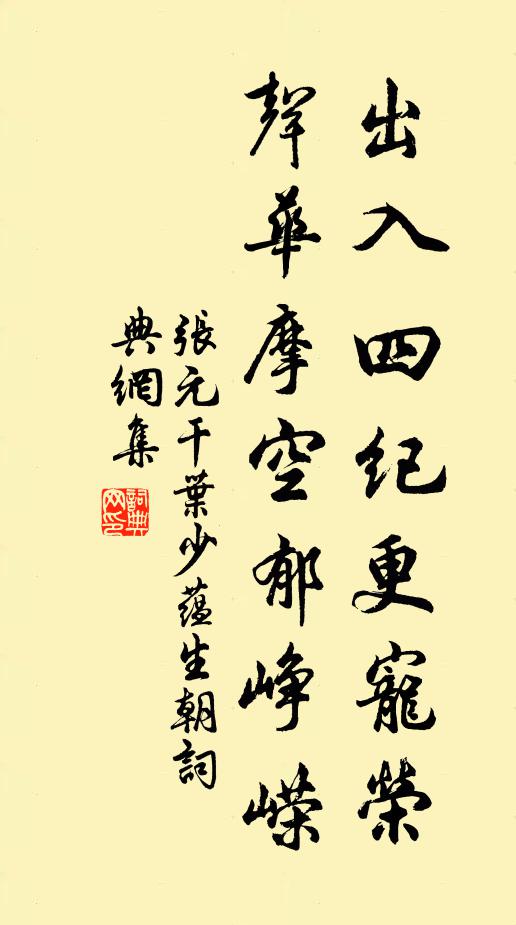 出入四紀更寵榮
聲華摩空郁峥嵘
張元干葉少蕴生朝詞
典網集
詞典网印